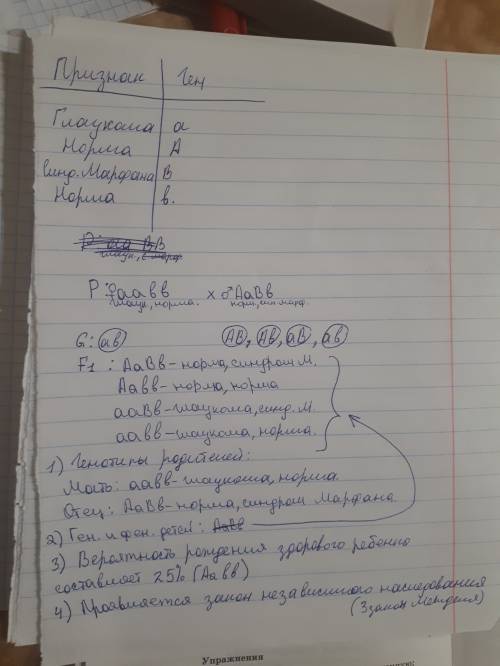 Признак | Ген
Глаукома а
Норма А
Синд. Марфана В
Норма в.
P: ♀аавв х ♂АаВв
глаук., норма. норм., син. марф.
G: (ав) (АВ), (Ав), (аВ), (ав)
F1: АаВв - норма, синдром М.
Аавв - норма, норма
ааВв - глаукома, синд. М.
аавв - глаукома, норма.
1) Генотипы родителей:
Мать: аавв - глаукома, норма.
Отец: АаВв - норма, синдром Марфана.
2) Ген. и фен. детей:
3) Вероятность рождения здорового ребенка
составляет 25% (Аавв)
4) Проявляется закон независимого наследования
(3 закон Менделя)
Упражнения